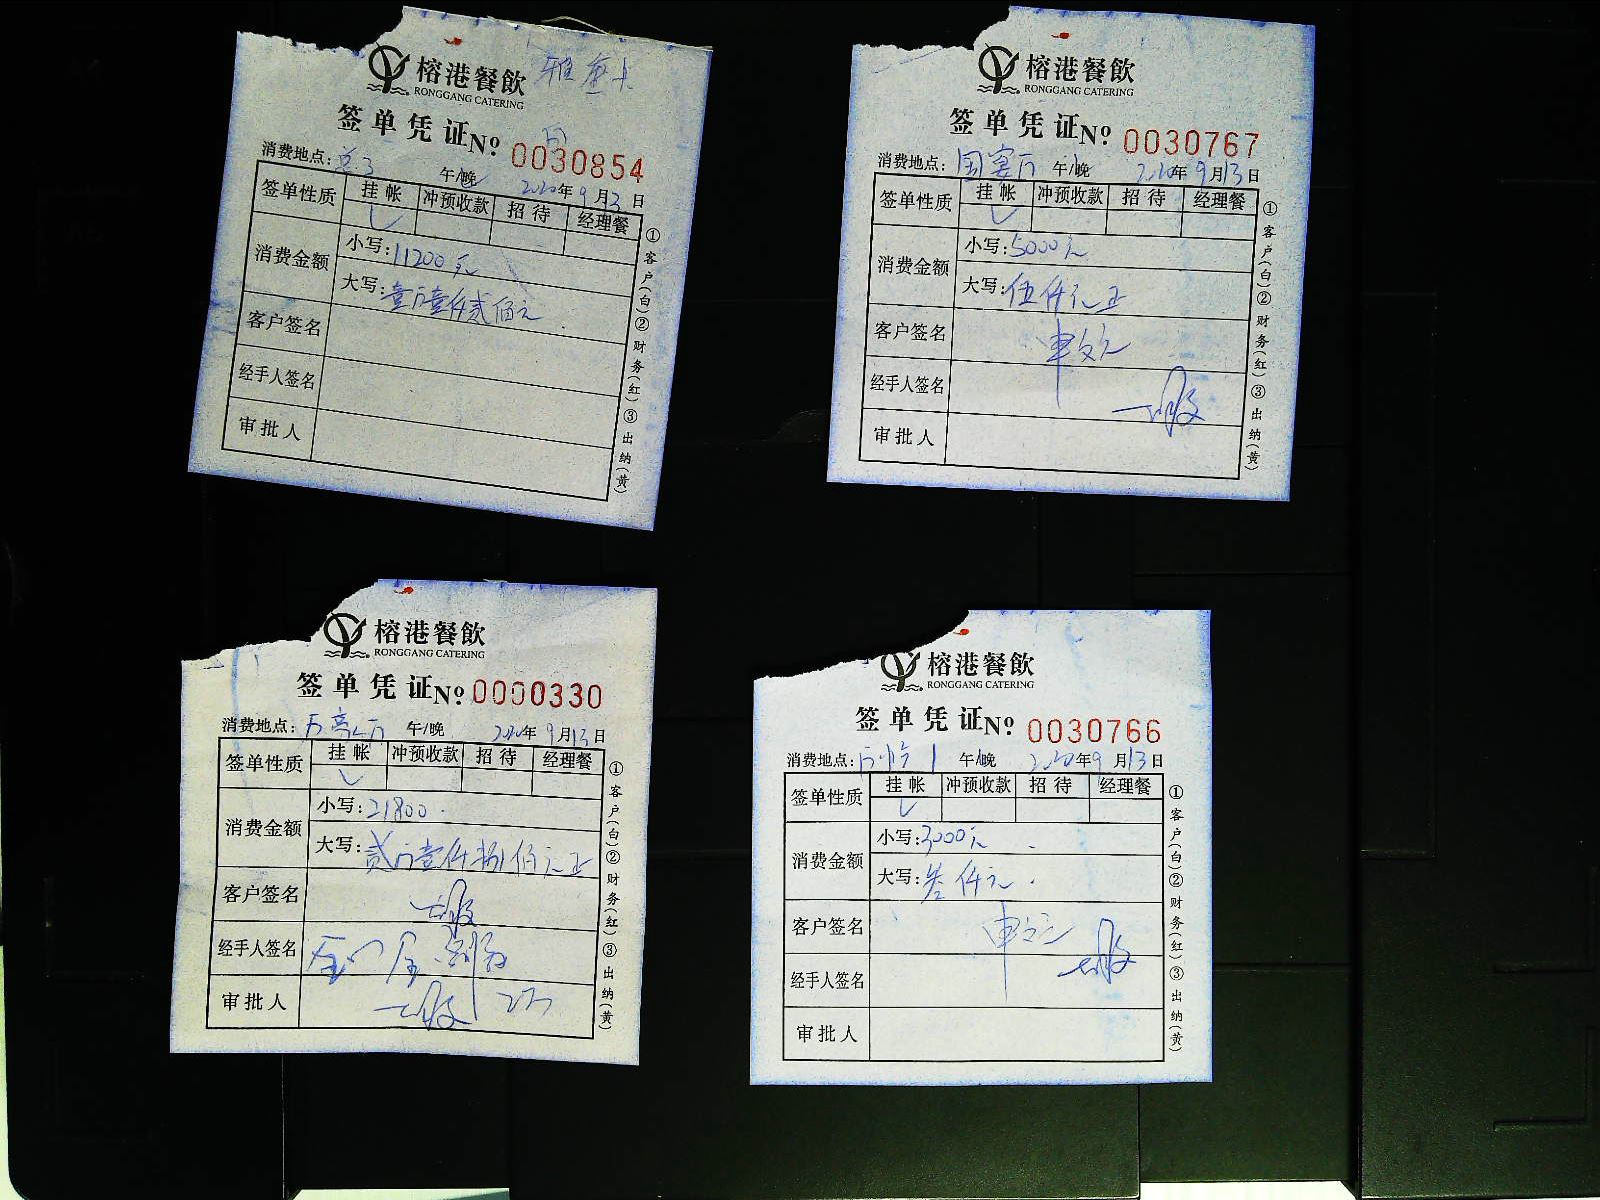 榕港餐飲
RONGGANG CATERING
签单凭证 No 0030854
消费地点: 午/晚 2020年9月3日
签单性质 挂帐 冲预收款 招待 经理餐
消费金额
小写:11200元
大写:壹万壹仟贰佰元
客户签名
经手人签名
审批人
①客户(白)②财务(红)③出纳(黄)
榕港餐飲
RONGGANG CATERING
签单凭证 No 0030767
消费地点:国宴厅 午/晚 2020年9月13日
签单性质 挂帐 冲预收款 招待 经理餐
消费金额
小写:5000元
大写:伍仟元正
客户签名
经手人签名
审批人
①客户(白)②财务(红)③出纳(黄)
榕港餐飲
RONGGANG CATERING
签单凭证 No 0000330
消费地点: 午/晚 2020年9月13日
签单性质 挂帐 冲预收款 招待 经理餐
消费金额
小写:21800
大写:贰万壹仟捌佰元正
客户签名
经手人签名
审批人
①客户(白)②财务(红)③出纳(黄)
榕港餐飲
RONGGANG CATERING
签单凭证 No 0030766
消费地点: 午/晚 2020年9月13日
签单性质 挂帐 冲预收款 招待 经理餐
消费金额
小写:3000元
大写:叁仟元
客户签名
经手人签名
审批人
①客户(白)②财务(红)③出纳(黄)